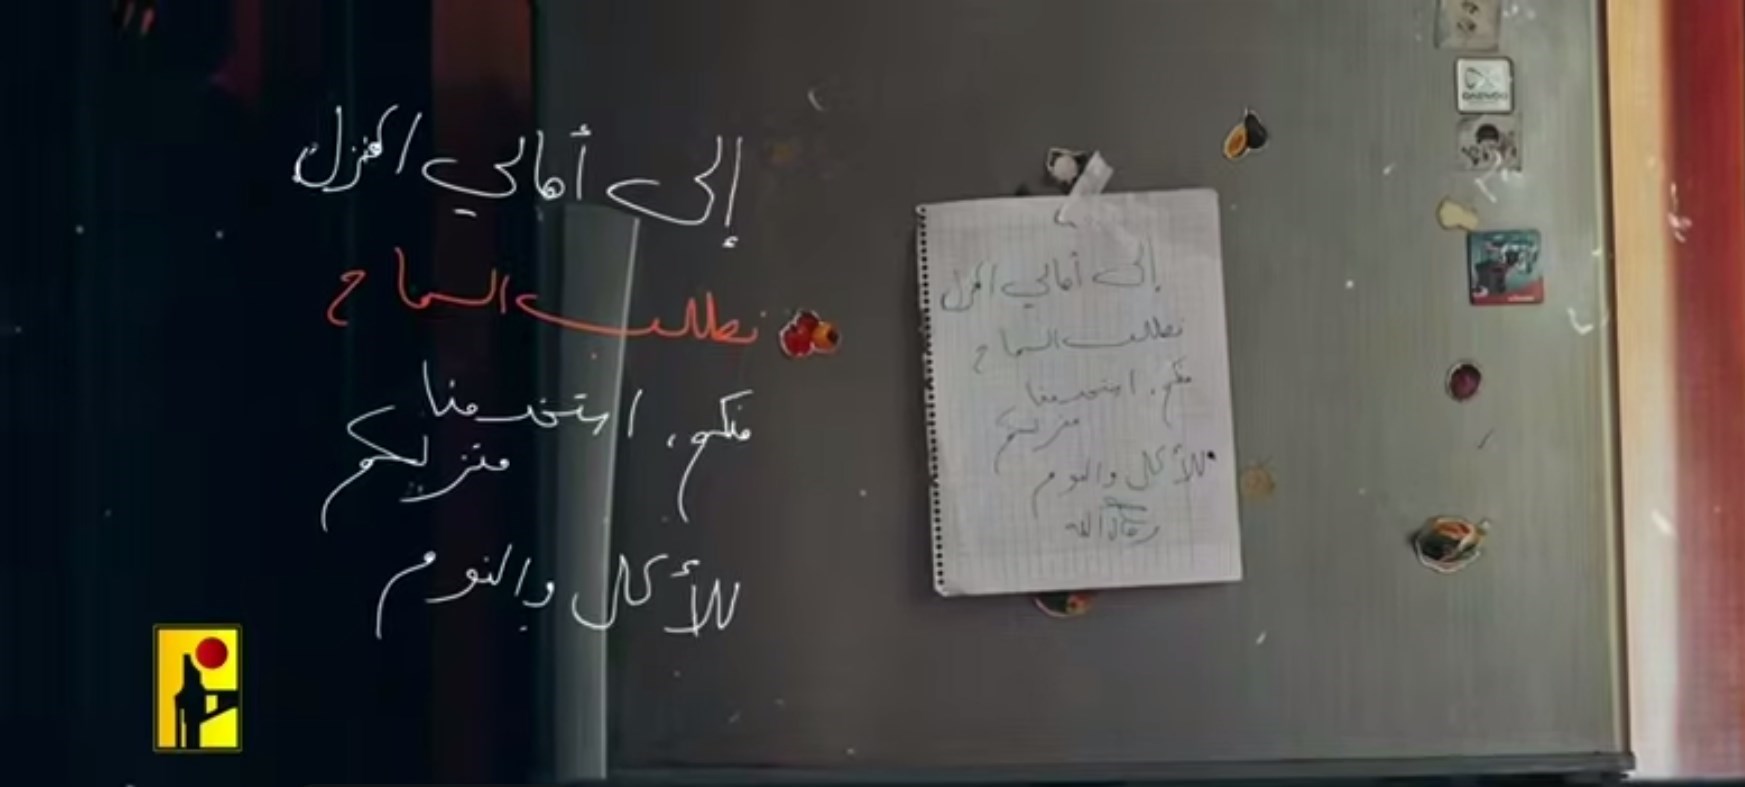 إلى أهالي المنزل
نطلب السماح
منكم، استخدمنا
منزلكم
للأكل والنوم
إلى أهالي المنزل
نطلب السماح
منكم، استخدمنا
منزلكم
للأكل والنوم
DAEWOO